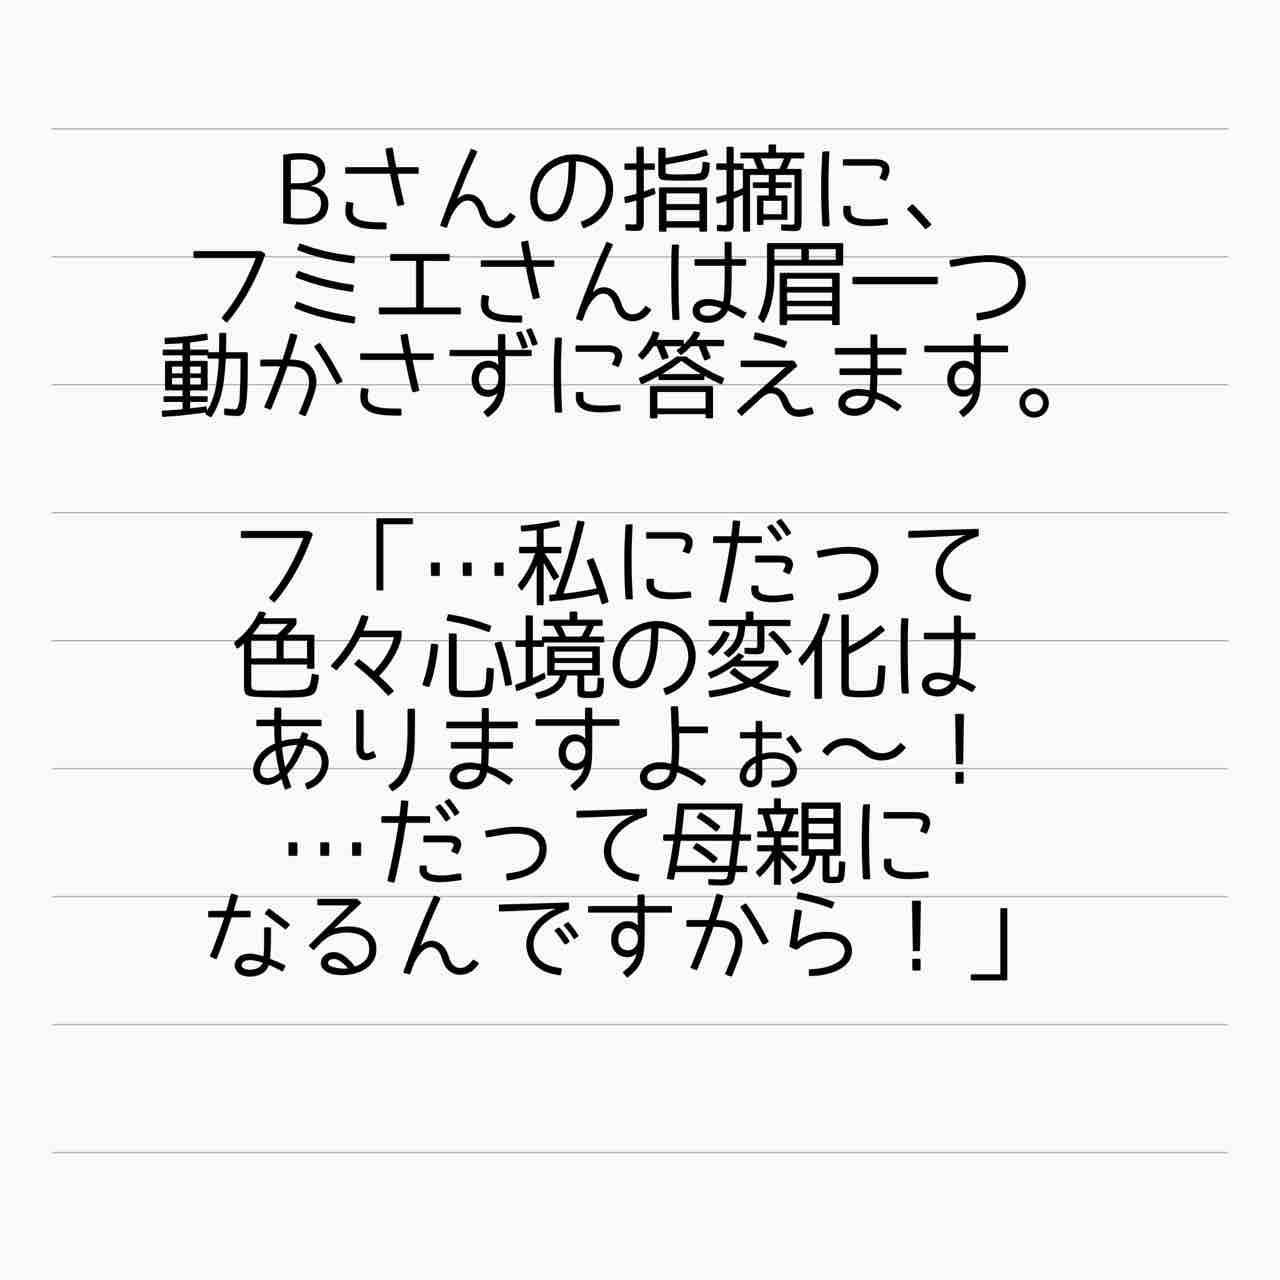 Bさんの指摘に、
フミエさんは眉一つ
動かさずに答えます。
フ「…私にだって
色々心境の変化は
ありますよぉ〜！
…だって母親に
なるんですから！」